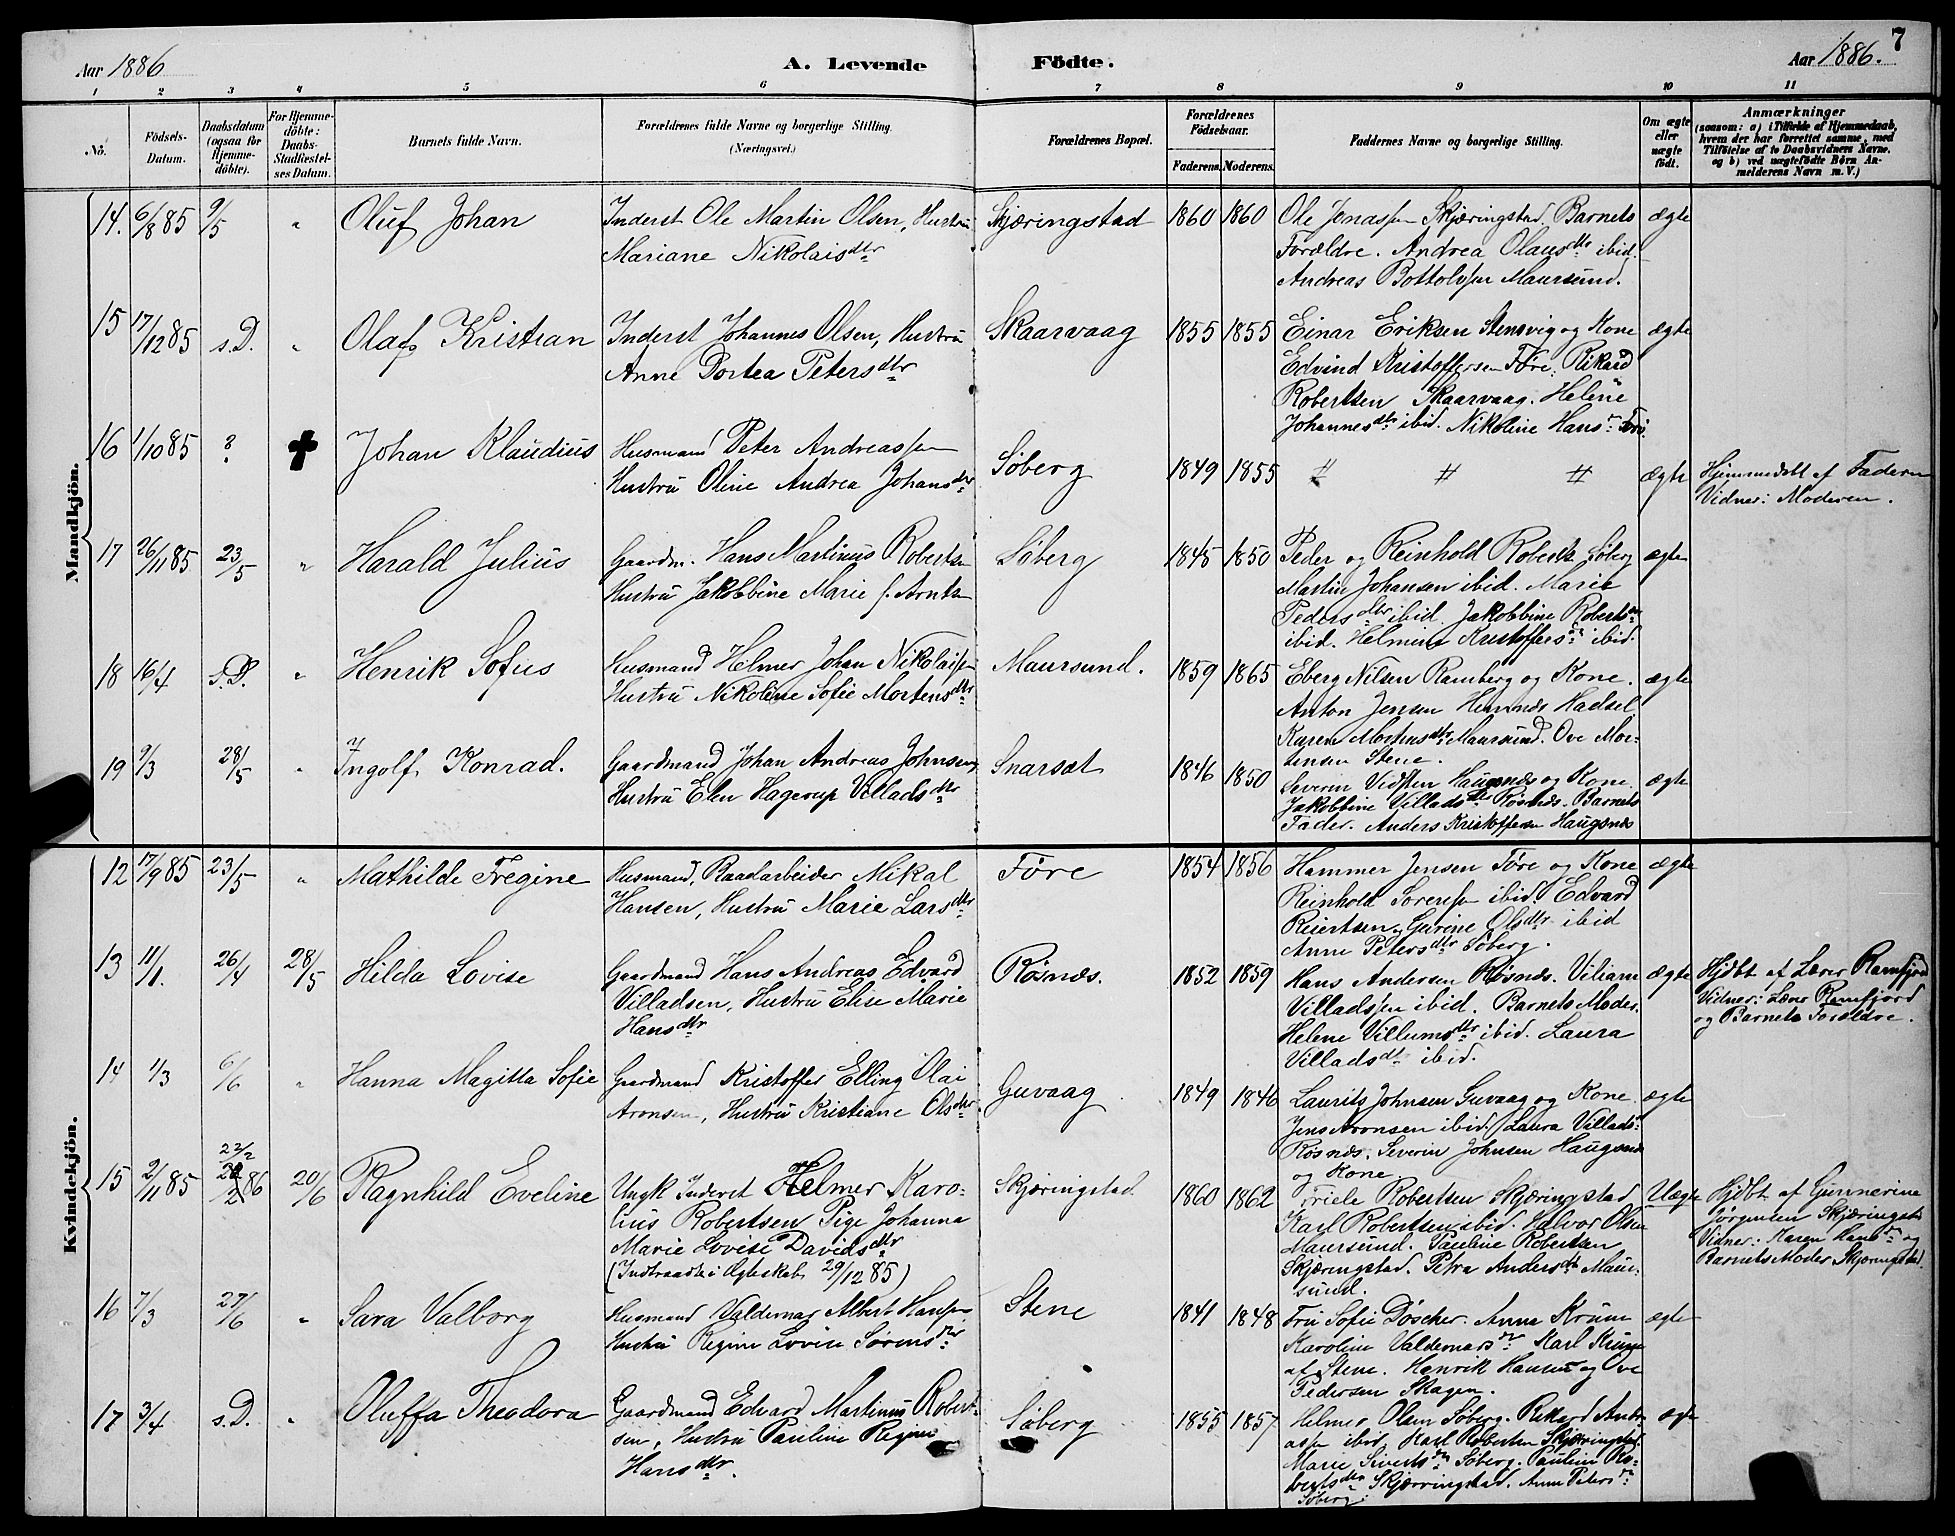 7
Aar 1886
A. Levende Födte.
Aar 1886.
1 2 3 4 5 6 7 8 9 10 11
No.
Födsels-Datum.
Daabsdatum (ogsaa for Hjemme-döbte).
For Hjemme-döbte: Daabs-Stadfæstel-ses Datum.
Barnets fulde Navn.
Forældrenes fulde Navne og borgerlige Stilling.
(Næringsvei.)
Forældrenes Bopæl.
Forældrenes Födselsaar.
Faderens. Moderens.
Faddernes Navne og borgerlige Stilling.
Om ægte eller uægte födt.
Anmærkninger
(saasom: a) i Tilfælde af Hjemmedaab, hvem der har forrettet samme, med Tilföielse af to Daabsvidners Navne, og b) ved uægtefödte Börn An-melderens Navn m. V.)
Mandkjön.
14. 6/8 85 9/5 " Oluf Johan
Inderst Ole Martin Olsen, Hustru
Mariane Nikolaisdtr
Skjæringstad 1860 1860
Ole Jonassen Skjæringstad. Barnets
Forældre. Andrea Olausdtr ibid.
Andreas Bottolvsen Maursund.
ægte
15 17/12 85 s.D. " Olaf Kristian
Inderst Johannes Olsen, Hustru
Anne Dortea Petersdtr
Skaarvaag 1855 1855
Einar Eriksen Stensvig og Kone
Edvind Kristoffersen Føre. Rikard
Robertsen Skaarvaag. Helene
Johannesdtr ibid. Nikoline Hans
ægte
16 1/10 85 ? ✝ Johan Klaudius
Husmand Peter Andreassen
Hustru Oline Andrea Johansdtr
Søberg 1849 1855 # # # ægte
Hjemmedøbt af Faderen
Vidner: Moderen.
17 26/11 85 23/5 " Harald Julius
Gaardm. Hans Martinus Roberts
Hustru Jakobbine Marie f. Arnts
Søberg 1845 1850
Peder og Reinhold Roberts Søberg
Martin Johansen ibid. Marie
Pedersdtr ibid. Jakobbine Roberts
ibid. Helmine Kristoffers ibid.
ægte
18 16/4 s.D. " Henrik Sofus
Husmand Helmer Johan Nikolaisen
Hustru Nikoline Sofie Mortensdtr
Maursund. 1859 1865
Eberg Nilsen Ramberg og Kone.
Anton Jensen Hennæs Hadsel
Karen Mortensdtr Maursund. Ove Mor-
tensen Stene.
ægte
19 9/3 28/5 " Ingolf Konrad.
Gaardmand Johan Andreas Johnsen,
Hustru Elen Hagerup Villadsdtr
Snarsæt 1846 1850
Severin Haugsnæs og Kone.
Jakobbine Villadsdtr Røsnæs. Barnets
Fader. Anders Kristoffersen Haugsnæs
ægte
Kvindekjön.
12 17/9 85 23/5 " Mathilde Fregine
Husmand, Raadarbeider Mikal
Hansen, Hustru Marie Larsdtr
Føre 1854 1856
Hammer Jensen Føre og Kone
Reinhold Sørensen ibid. Edvard
Reiertsen. Gurine Olsdtr ibid
Anne Petersdtr Søberg.
ægte
13 11/1. 26/4 28/5 Hilda Lovise
Gaardmand Hans Andreas Edvard
Villadsen, Hustru Elise Marie
Hansdtr
Røsnæs. 1852 1859
Hans Andersen Røsnæs. Viliam
Villadsen ibid. Barnets Moder.
Helene Villumsdtr ibid. Laura
Villadsdtr ibid.
ægte
Hjdbt af Lærer Ramfjord
Vidner: Lærer Ramfjord
og Barnets Forældre.
14 1/3 6/6 " Hanna Magitta Sofie
Gaardmand Kristoffer Elling Olai
Aronsen, Hustru Kristiane Olsdtr
Guvaag 1849 1846
Laurits Johnsen Guvaag og Kone.
Jens Aronsen ibid. Laura Villads
Røsnæs. Severin Johnsen Haugsnæs
og Kone
ægte
15 2/11 85 22/2 86 20/6 Ragnhild Eveline
Ungk Inderst Helmer Karo-
lius Robertsen Pige Johanna
Marie Lovise Davidsdtr
(Indtraadte i Ægteskab 29/12 85)
Skjæringstad 1860 1862
Friele Robertsen Skjæringstad
Karl Robertsen ibid. Halvor Olsen
Maursund. Pauline Robertsen
Skjæringstad. Petra Andersdtr Maur-
sund.
Uægte
Hjdbt af Gunnerine
Jørgensen Skjæringst
Vidner: Karen Hans og
Barnets Moder Skjæringstad.
16 7/3 27/6 " Sara Valborg
Husmand Valdemar Albert Hansen
Hustru Regine Lovise Sørensdtr
Stene 1841 1848
Fru Sofie Døscher. Anna Krum
Karoline Valdemars Karl Krum
af Stene. Henrik Hansen og Ove
Pedersen Skagen.
ægte
17 3/4 s.D. " Oluffa Theodora
Gaardmand Edvard Martinus Robert-
sen, Hustru Pauline Regine
Hansdtr.
Søberg 1855 1857
Helmer Olsen Søberg. Rikard Andre-
assen ibid. Karl Robertsen Skjæringstad.
Marie Siverts Søberg. Pauline Ro-
berts Skjærringstad. Anne Peters
Søberg.
ægte